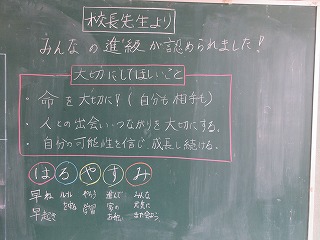 校長先生より
みんなの進級が認められました!
大切にしてほしいこと
・命を大切に!(自分も相手も)
・人との出会い・つながりを大切にする。
・自分の可能性を信じ成長し続ける。
はるやすみ
早ね
早起き
ルールを守る
やろう
学習
進んで
家の
お手伝い
みんな
元気に
また会おう